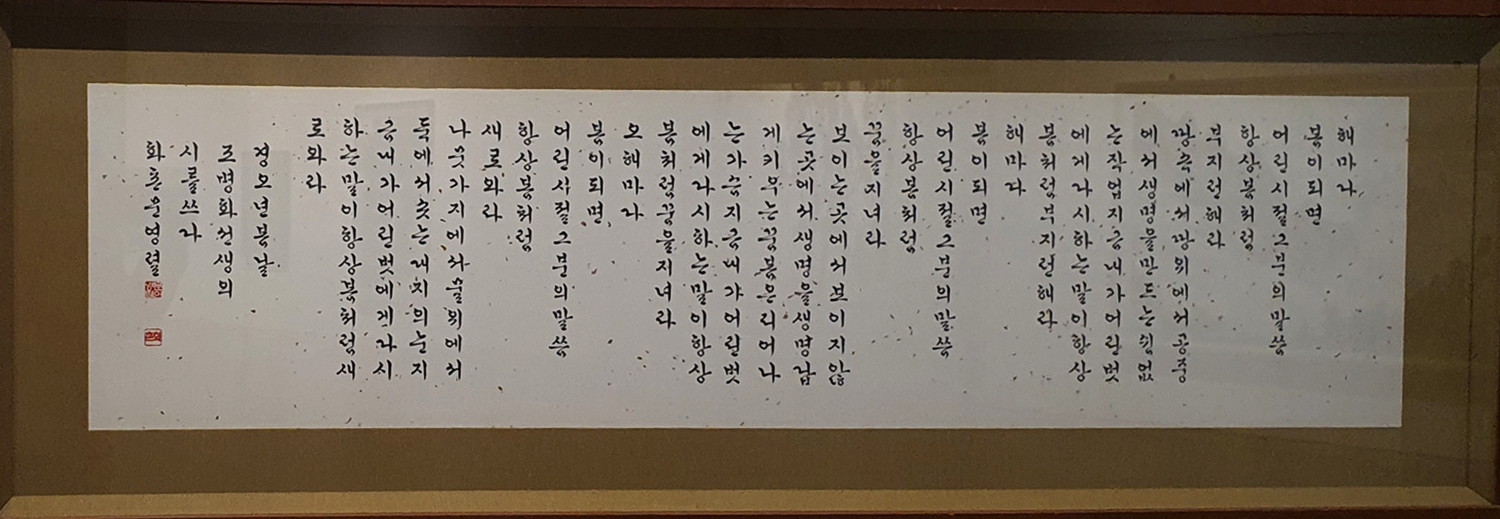 해마다
봄이되면
어린시절그분의말씀
항상봄처럼
부지런해라
땅속에서땅위에서공중
에서생명을만드는쉼없
는작업지금내가어린벗
에게다시하는말이항상
봄처럼부지런해라
해마다
봄이되면
어린시절그분의말씀
항상봄처럼
꿈을지녀라
보이는곳에서보이지않
는곳에서생명을생명답
게키우는꿈봄은피어나
는가슴지금내가어린벗
에게다시하는말이항상
봄처럼꿈을지녀라
오해마다
봄이되면
어린시절그분의말씀
항상봄처럼
새로와라
나뭇가지에서물위에서
둑에서솟는대지의눈지
금내가어린벗에게다시
하는말이항상봄처럼새
로와라
경오년봄날
조병화선생의
시를쓰다
화촌문영렬